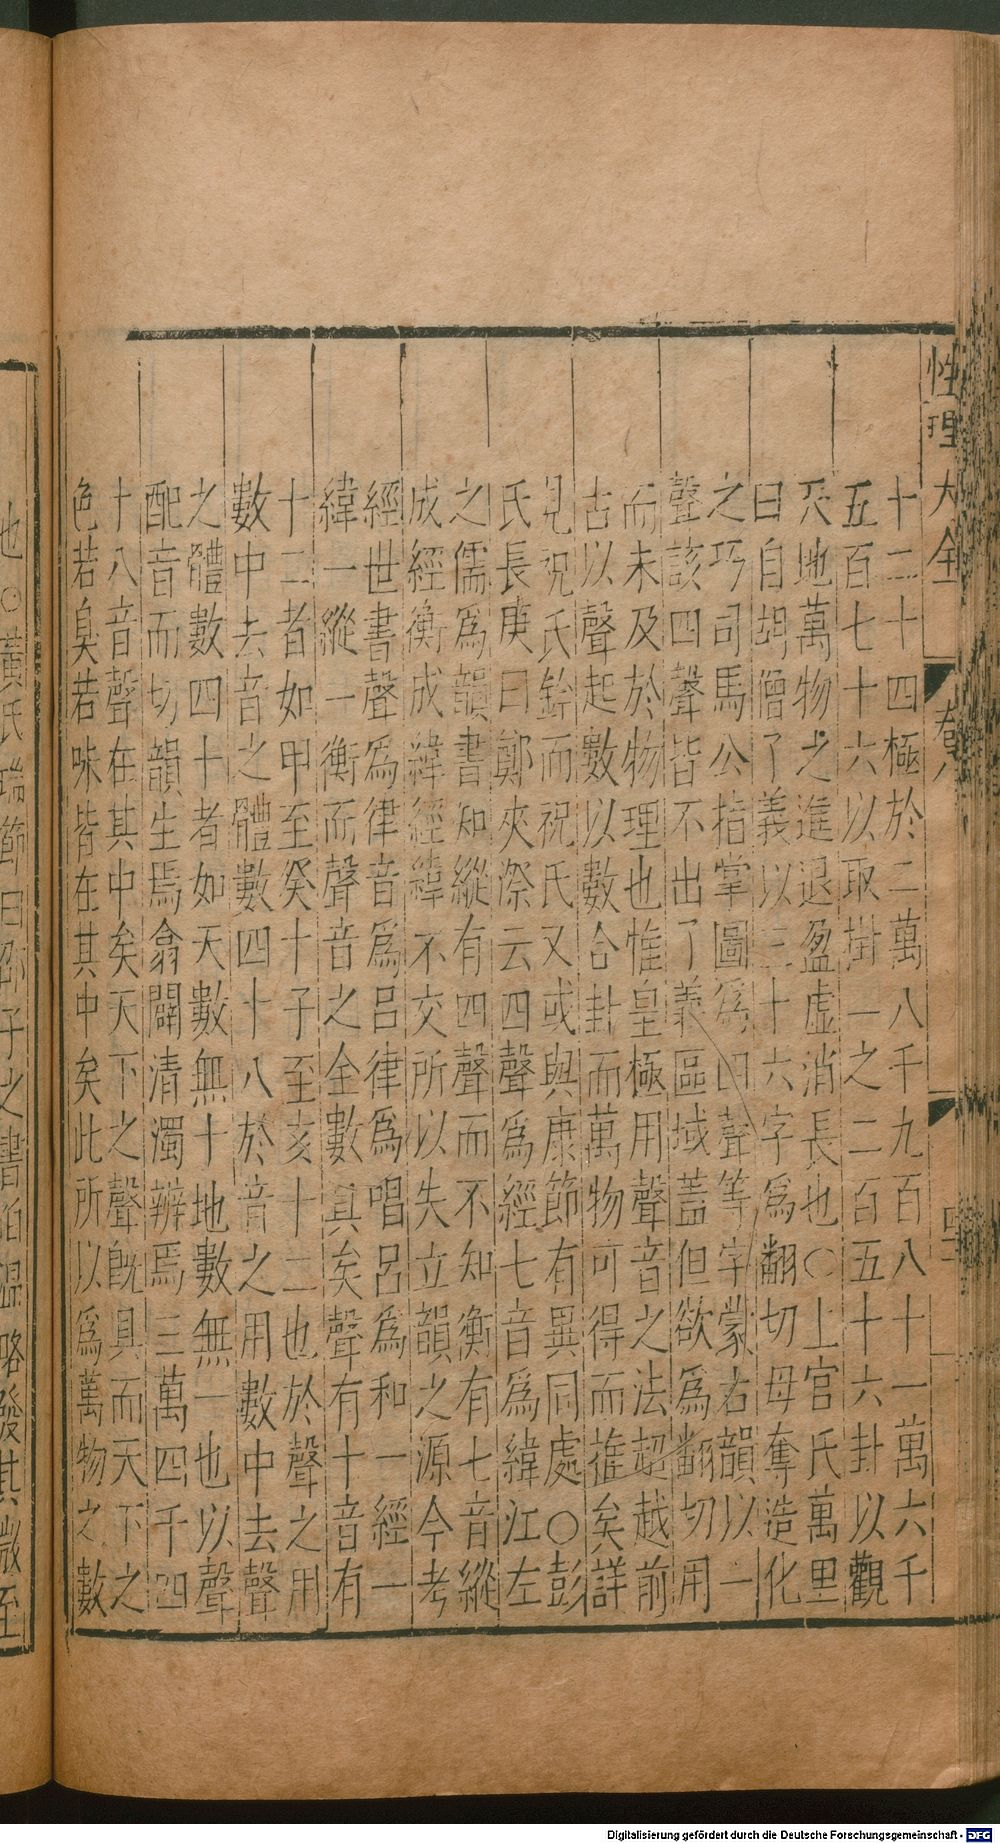 性理大全 卷八
十二十四極於二萬八千九百八十一萬六千
五百七十六以取掛一之二百五十六卦以觀
天地萬物之進退盈虛消長也○上官氏萬里
曰自胡僧了義以三十六字爲翻切母奪造化
之巧司馬公指掌圖爲四聲等字蒙古韻以一
聲該四聲皆不出了義區域蓋但欲爲翻切用
而未及於物理也惟皇極用聲音之法超越前
古以聲起數以數合卦而萬物可得而推矣詳
見祝氏鈐而祝氏又或與康節有異同處○彭
氏長庚曰鄭夾漈云四聲爲經七音爲緯江左
之儒爲韻書知縱有四聲而不知衡有七音縱
成經衡成緯經緯不交所以失立韻之源今考
經世書聲爲律音爲呂律爲唱呂爲和一經一
緯一縱一衡而聲音之全數具矣聲有十音有
十二者如甲至癸十子至亥十二也於聲之用
數中去音之體數四十八於音之用數中去聲
之體數四十者如天數無十地數無一也以聲
配音而切韻生焉翕闢清濁辨焉三萬四千四
十八音聲在其中矣天下之聲旣具而天下之
色若臭若味皆在其中矣此所以爲萬物之數
也○黃氏瑞節曰邵子之書伯溫略發其微至
Digitalisierung gefördert durch die Deutsche Forschungsgemeinschaft - DFG